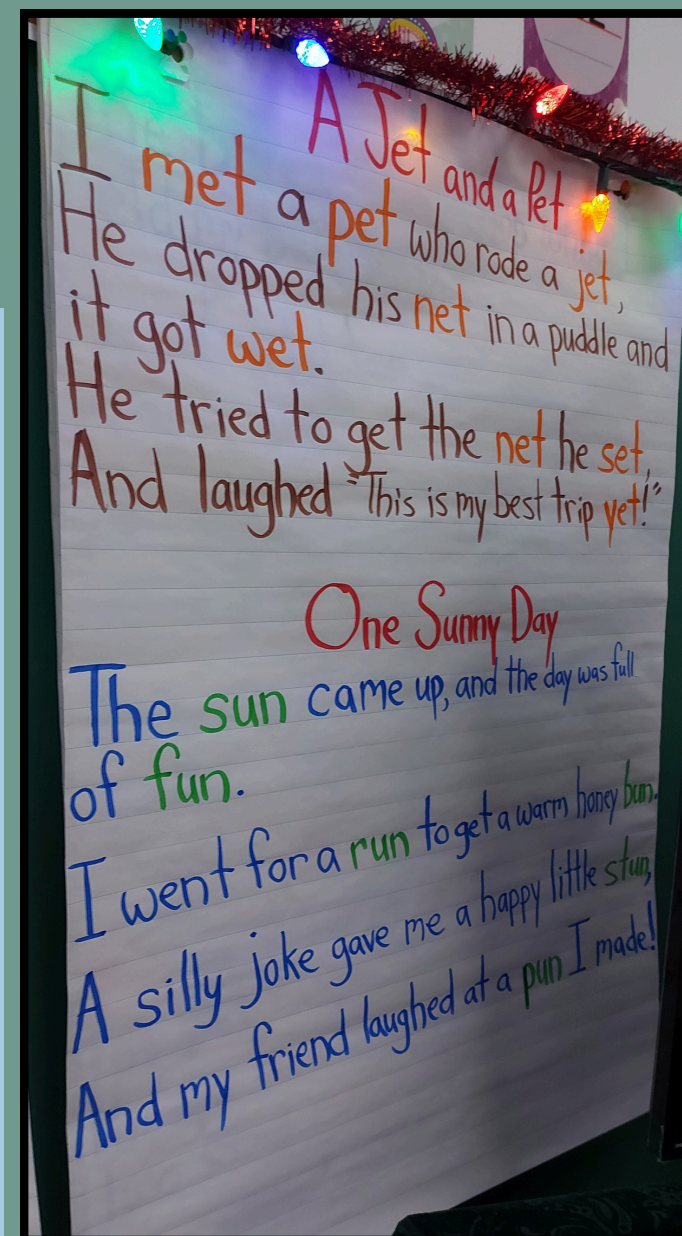 A Jet and a Pet
I met a pet who rode a jet,
He dropped his net in a puddle and
it got wet.
He tried to get the net he set,
And laughed "This is my best trip yet!"
One Sunny Day
The sun came up, and the day was full
of fun.
I went for a run to get a warm honey bun.
A silly joke gave me a happy little stun,
And my friend laughed at a pun I made!